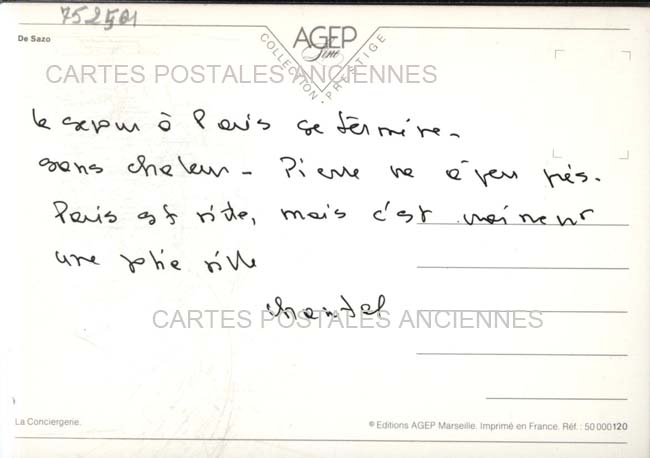 752501
De Sazo
AGEP
fine
COLLECTION PRESTIGE
CARTES POSTALES ANCIENNES
Le sejour à Paris se termine -
sans chaleur - Pierre va à peu près.
Paris est vide, mais c'est vraiment
une jolie ville
Chantal
CARTES POSTALES ANCIENNES
La Conciergerie.
© Editions AGEP Marseille. Imprimé en France. Réf. : 50 000120